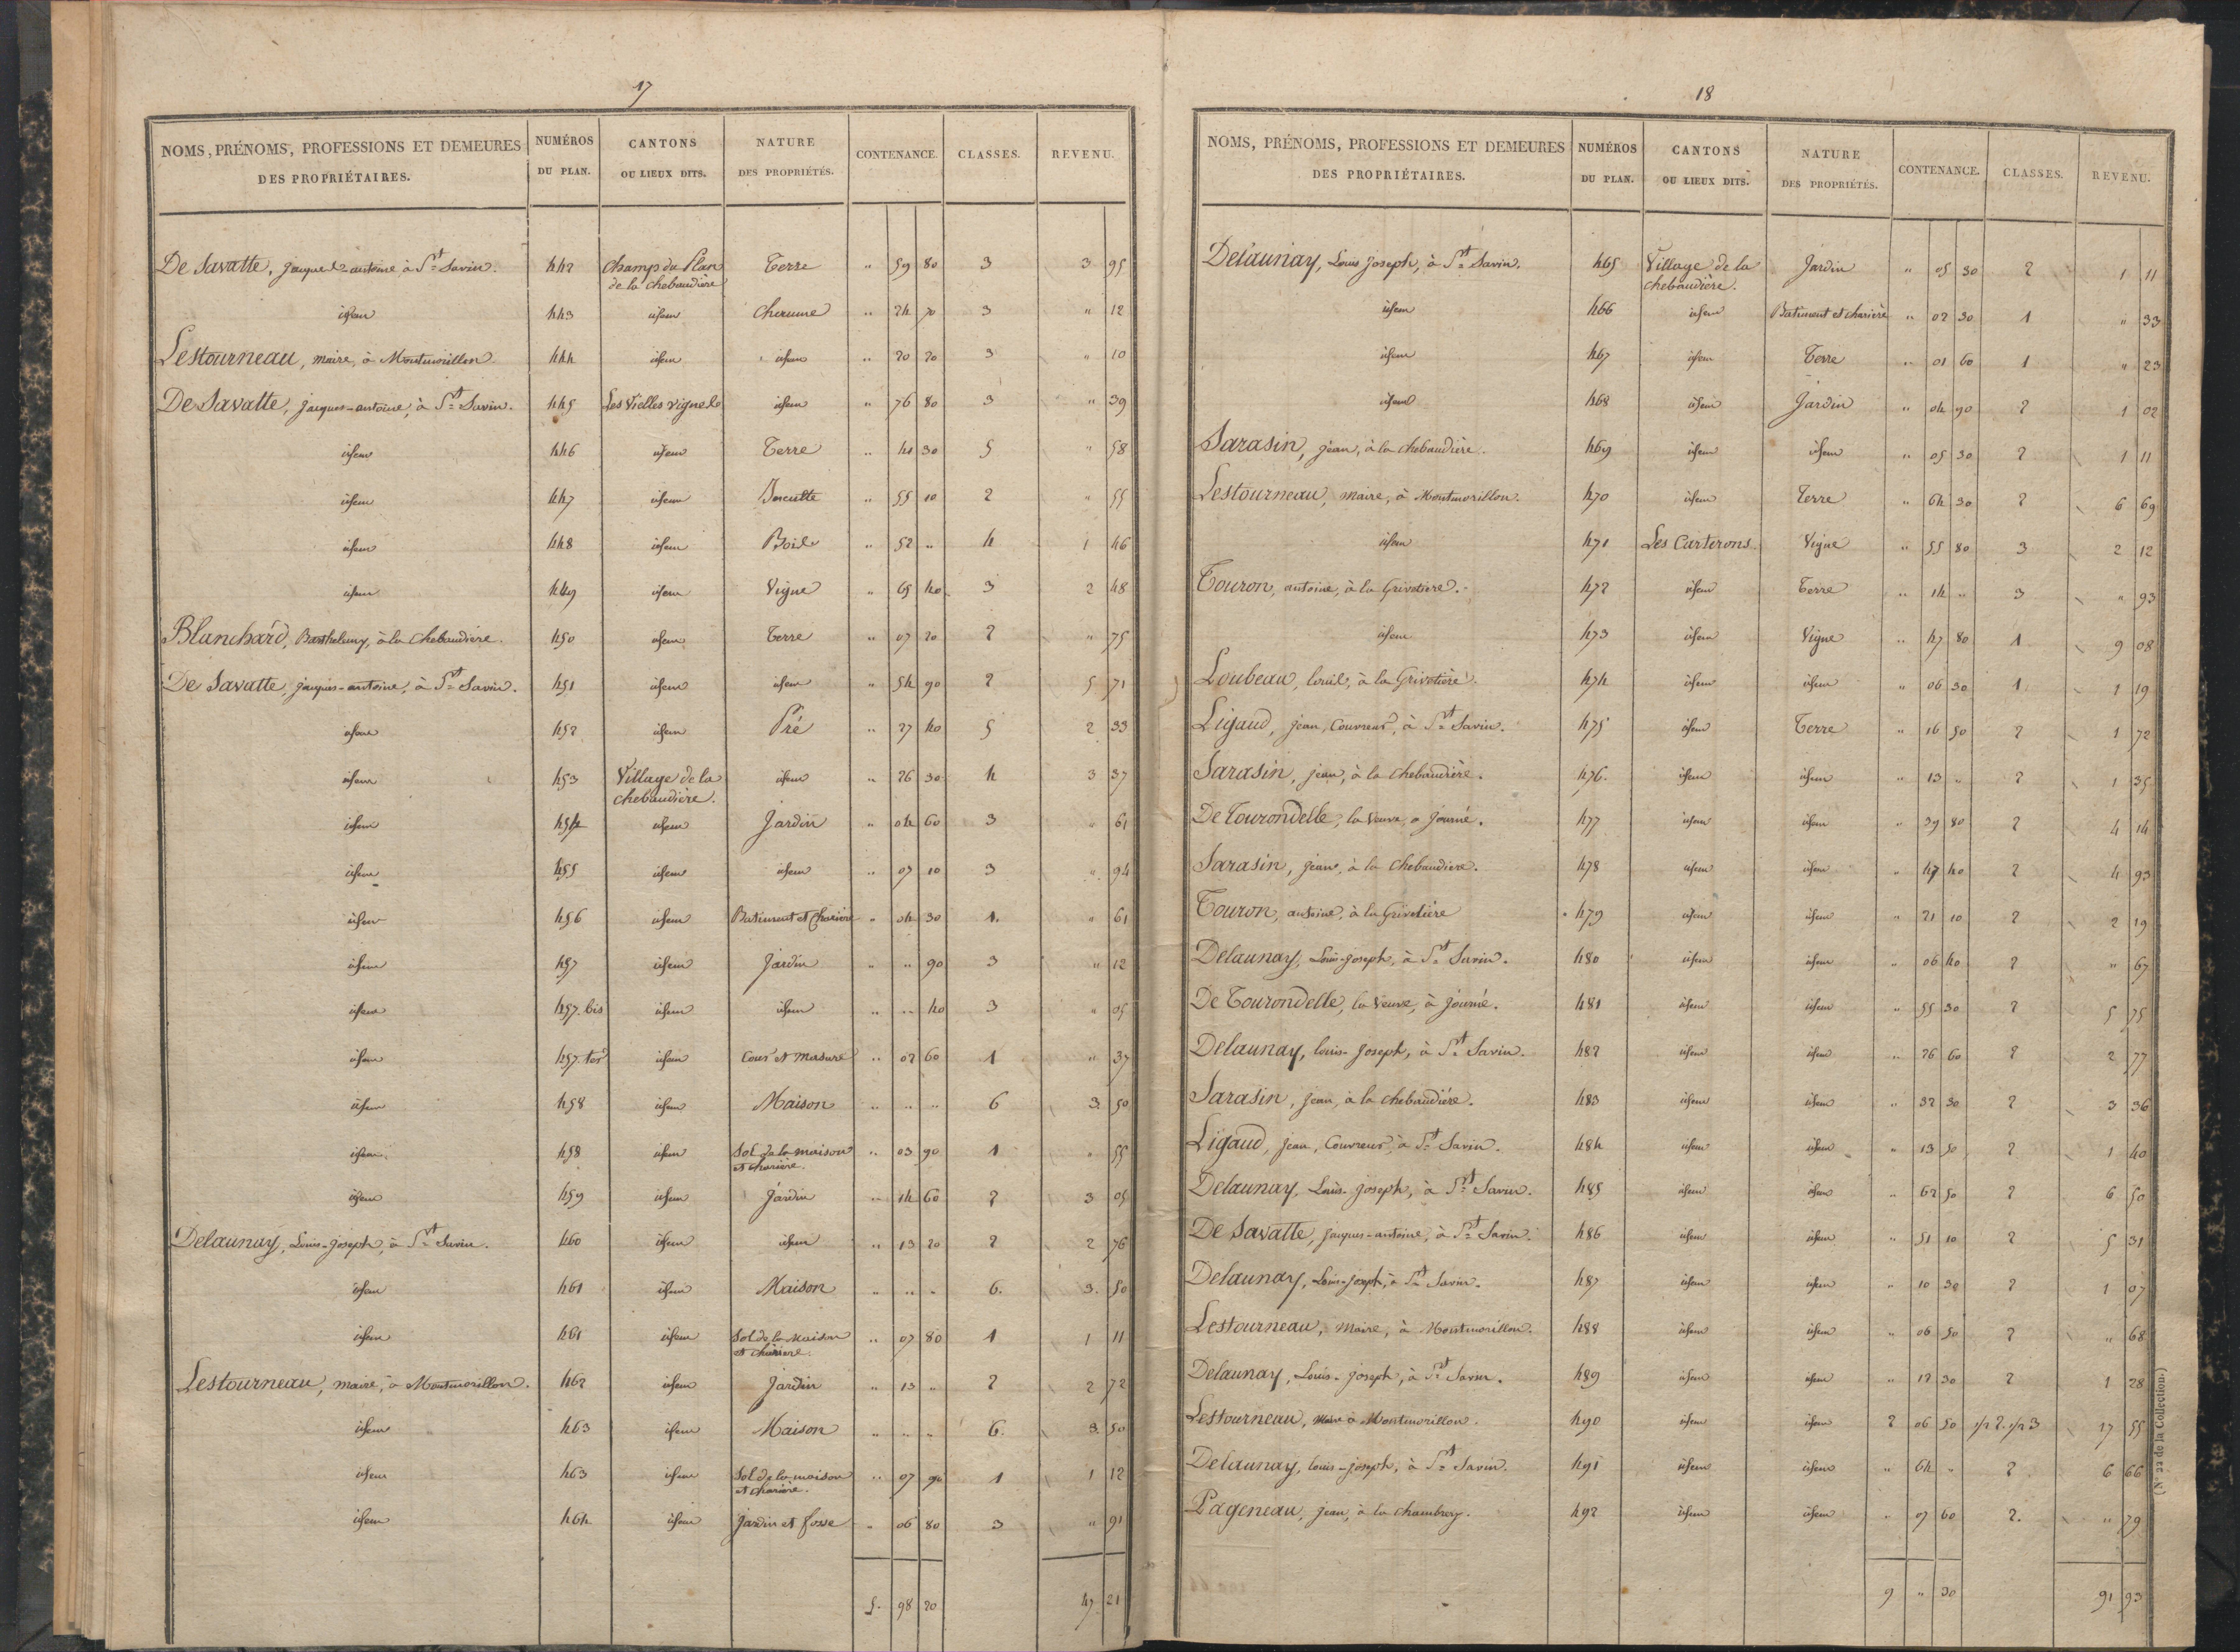 17
NOMS, PRÉNOMS, PROFESSIONS ET DEMEURES DES PROPRIÉTAIRES. NUMÉROS DU PLAN. CANTONS OU LIEUX DITS. NATURE DES PROPRIÉTÉS. CONTENANCE. CLASSES. REVENU.
De Savatte, jacques-antoine à St Savin. 442 Champs du Plan de la chebaudière Terre " 59 80 3 3 95
idem 443 idem Cherume " 24 70 3 " 12
Lestourneau, maire, à Montmorillon 444 idem idem " 20 20 3 " 10
De Savatte, jacques-antoine, à St Savin. 445 Les Vielles vignes idem " 76 80 3 " 39
idem 446 idem Terre " 41 30 5 " 58
idem 447 idem Inculte " 55 10 2 " 55
idem 448 idem Bois " 52 " 4 1 46
idem 449 idem Vigne " 65 40 3 2 48
Blanchard, Barthelemy, à la Chebaudière. 450 idem Terre " 07 20 2 " 75
De Savatte, jacques-antoine, à St Savin. 451 idem idem " 54 90 2 5 71
idem 452 idem Pré " 27 40 5 2 33
idem 453 Village de la chebaudière. idem " 26 30 4 3 37
idem 454 idem Jardin " 04 60 3 " 61
idem 455 idem idem " 07 10 3 " 94
idem 456 idem Batiment et Charière " 04 30 1. " 61
idem 457 idem Jardin " " 90 3 " 12
idem 457.bis idem idem " " 40 3 " 05
idem 457.ter idem Cour et masure " 02 60 1 " 37
idem 458 idem Maison " " " 6 3. 50
idem 458 idem Sol de la maison et charière. " 03 90 1 " 55
idem 459 idem Jardin " 14 60 2 3 05
Delaunay, Louis-joseph, à St Savin. 460 idem idem " 13 20 2 2 76
idem 461 idem Maison " " " 6. 3. 50
idem 461 idem Sol de la Maison et charière. " 07 80 1 1 11
Lestourneau, maire, à Montmorillon. 462 idem Jardin " 13 " 2 2 72
idem 463 idem Maison " " " 6. 3. 50
idem 463 idem Sol de la maison et charière. " 07 90 1 1 12
idem 464 idem Jardin et fosse " 06 80 3 " 91
5. 98 20 47. 21
18
NOMS, PRÉNOMS, PROFESSIONS ET DEMEURES DES PROPRIÉTAIRES. NUMÉROS DU PLAN. CANTONS OU LIEUX DITS. NATURE DES PROPRIÉTÉS. CONTENANCE. CLASSES. REVENU.
Delaunay, Louis joseph, à St Savin. 465 Village de la chebaudière. Jardin " 05 30 2 1 11
idem 466 idem Batiment et charière " 02 30 1 " 33
idem 467 idem Terre " 01 60 1 " 23
idem 468 idem Jardin " 04 90 2 1 02
Sarasin, jean, à la chebaudière. 469 idem idem " 05 30 2 1 11
Lestourneau, maire, à Montmorillon. 470 idem Terre " 64 30 2 6 69
idem 471 Les Carterons. Vigne " 55 80 3 2 12
Touron, antoine, à la Grivetiere. 472 idem Terre " 14 " 3 " 93
idem 473 idem Vigne " 47 80 1 9 08
Loubeau, louis, à la Grivetière. 474 idem idem " 06 30 1 1 19
Ligaud, jean, Couvreur, à St Savin. 475 idem Terre " 16 50 2 1 72
Sarasin, jean, à la chebaudière. 476. idem idem " 13 " 2 1 35
De Tourondelle, la Veuve, à journé. 477 idem idem " 39 80 2 4 14
Sarasin, jean, à la Chebaudiere. 478 idem idem " 47 40 2 4 93
Touron, antoine, à la Grivetière 479 idem idem " 21 10 2 2 19
Delaunay, Louis-joseph, à St Savin. 480 idem idem " 06 40 2 " 67
De Tourondelle, la Veuve, à journé. 481 idem idem " 55 30 2 5 75
Delaunay, louis-Joseph, à St Savin. 482 idem idem " 26 60 2 2 77
Sarasin, jean, à la chebaudière. 483 idem idem " 32 30 2 3 36
Ligaud, jean, Couvreur, à St Savin. 484 idem idem " 13 50 2 1 40
Delaunay, Louis-joseph, à St Savin. 485 idem idem " 62 50 2 6 50
De Savatte, jacques-antoine, à St Savin. 486 idem idem " 51 10 2 5 31
Delaunay, Louis-joseph, à St Savin. 487 idem idem " 10 30 2 1 07
Lestourneau, Maire, à Montmorillon. 488 idem idem " 06 50 2 " 68
Delaunay, Louis-joseph, à St Savin. 489 idem idem " 12 30 2 1 28
Lestourneau, Maire à Montmorillon. 490 idem idem 2 06 50 1/2 2. 1/2 3 17 55
Delaunay, louis-joseph, à St Savin. 491 idem idem " 64 " 2 6 66
Pageneau, jean, à la Chambrery. 492 idem idem " 07 60 2. " 79
9 " 30 91 93
(N° 22 de la Collection.)